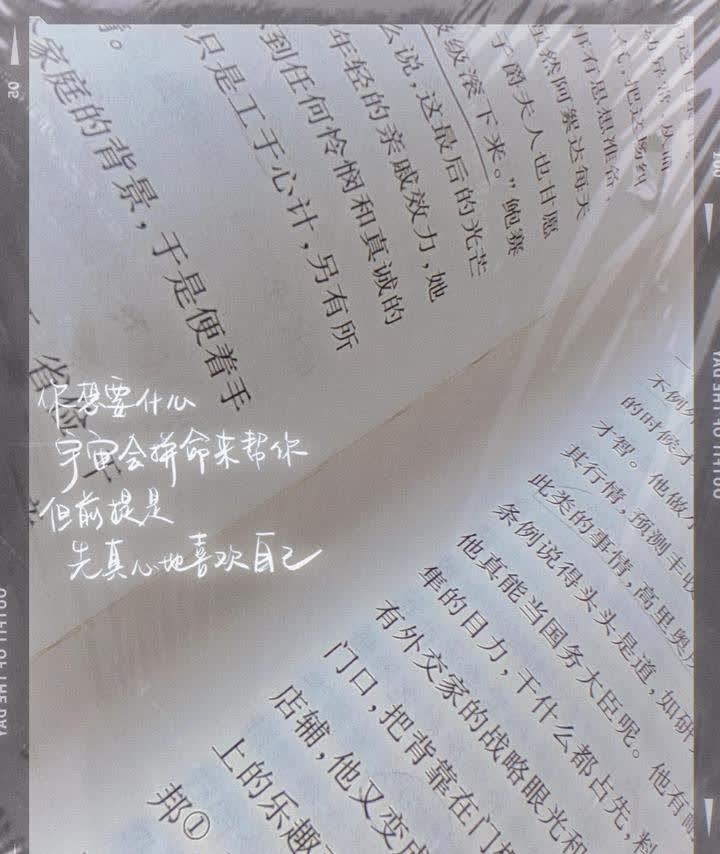 事有思想准备，
然阿絮达每天
子爵夫人也甘愿
级滚下来。”鲍赛
么说，这最后的光芒
年轻的亲戚效力，她
到任何怜悯和真诚的
只是工于心计，另有所
情。
家庭的背景，于是便着手
你想要什么
宇宙会拼命来帮你
但前提是
先真心地喜欢自己
不例外
的时候才
才智。他做
其行情，预测丰收
此类的事情，高里奥
条例说得头头是道，如研
他真能当国务大臣呢。他有
隼的目力，干什么都占先，料
有外交家的战略眼光和
门口，把背靠在门
店铺，他又变成
上的乐趣
邦①